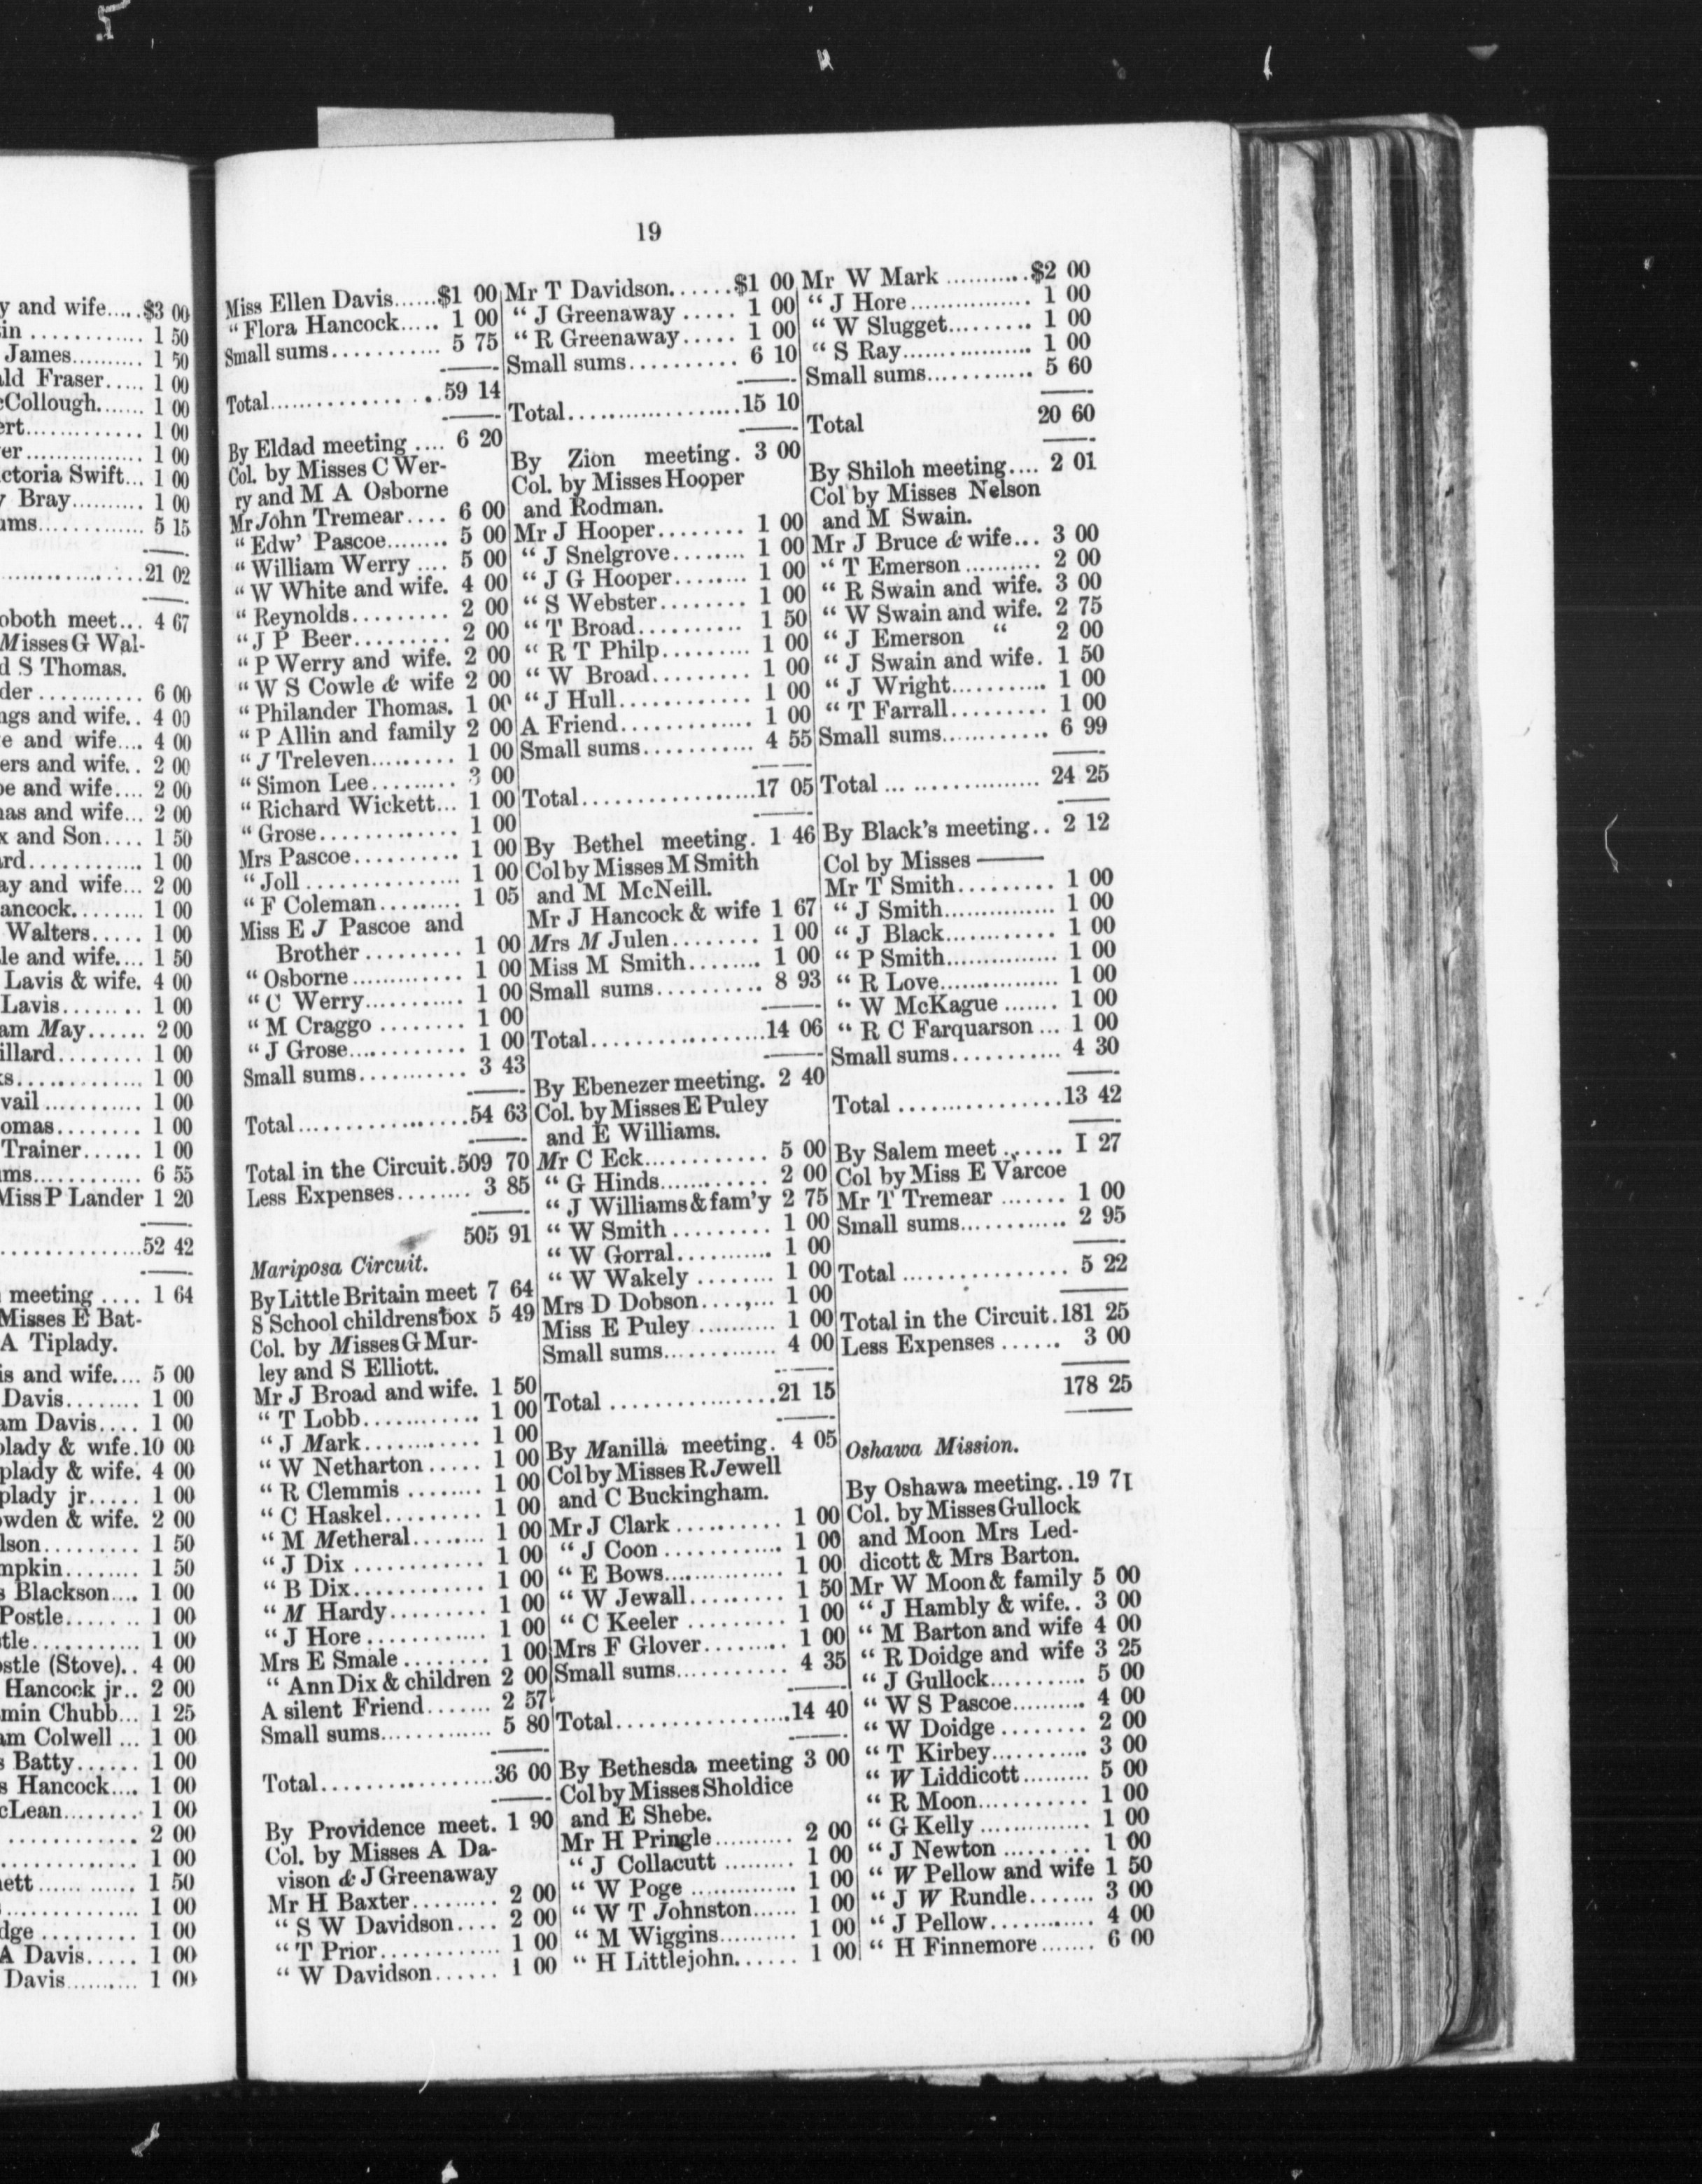 y and wife.....$3 00
in ............ 1 50
James.......... 1 50
ald Fraser..... 1 00
cCollough....... 1 00
ert............. 1 00
er................ 1 00
ctoria Swift... 1 00
y Bray........... 1 00
ums.............. 5 15
.................21 02
oboth meet... 4 67
Misses G Wal-
d S Thomas.
der ............ 6 00
ngs and wife.. 4 00
e and wife.... 4 00
ers and wife.. 2 00
be and wife.... 2 00
nas and wife... 2 00
x and Son.... 1 50
ard............. 1 00
ay and wife... 2 00
ancock......... 1 00
Walters..... 1 00
le and wife.... 1 50
Lavis & wife. 4 00
Lavis......... 1 00
am May...... 2 00
illard......... 1 00
ks.............. 1 00
vail ........... 1 00
omas......... 1 00
Trainer...... 1 00
ms............ 6 55
Miss P Lander 1 20
...............52 42
meeting .... 1 64
Misses E Bat-
A Tiplady.
is and wife.... 5 00
Davis......... 1 00
am Davis.... 1 00
plady & wife.10 00
plady & wife. 4 00
plady jr..... 1 00
owden & wife. 2 00
lson.......... 1 50
mpkin........ 1 50
s Blackson.... 1 00
Postle....... 1 00
tle............ 1 00
ostle (Stove).. 4 00
Hancock jr.. 2 00
min Chubb... 1 25
am Colwell ... 1 00
s Batty...... 1 00
s Hancock.... 1 00
cLean......... 1 00
.............. 2 00
.............. 1 00
nett............ 1 50
.............. 1 00
dge .......... 1 00
A Davis..... 1 00
Davis.......... 1 00
19
Miss Ellen Davis......$1 00
" Flora Hancock..... 1 00
Small sums........... 5 75
Total.................59 14
By Eldad meeting .... 6 20
Col. by Misses C Wer-
ry and M A Osborne
Mr John Tremear.... 6 00
" Edw' Pascoe........ 5 00
" William Werry .... 5 00
" W White and wife. 4 00
" Reynolds.......... 2 00
" J P Beer.......... 2 00
" P Werry and wife. 2 00
" W S Cowle & wife 2 00
" Philander Thomas. 1 00
" P Allin and family 2 00
" J Treleven......... 1 00
" Simon Lee......... 3 00
" Richard Wickett... 1 00
" Grose............. 1 00
Mrs Pascoe.......... 1 00
" Joll............... 1 00
" F Coleman.......... 1 05
Miss E J Pascoe and
Brother .......... 1 00
" Osborne............. 1 00
" C Werry........... 1 00
" M Craggo ......... 1 00
" J Grose............ 1 00
Small sums........... 3 43
Total.................54 63
Total in the Circuit.509 70
Less Expenses......... 3 85
505 91
Mariposa Circuit.
By Little Britain meet 7 64
S School childrens box 5 49
Col. by Misses G Mur-
ley and S Elliott.
Mr J Broad and wife. 1 50
" T Lobb............ 1 00
" J Mark............ 1 00
" W Netharton ..... 1 00
" R Clemmis ........ 1 00
" C Haskel.......... 1 00
" M Metheral........ 1 00
" J Dix ............. 1 00
" B Dix............. 1 00
" M Hardy.......... 1 00
" J Hore............ 1 00
Mrs E Smale ........ 1 00
" Ann Dix & children 2 00
A silent Friend....... 2 57
Small sums............ 5 80
Total..................36 00
By Providence meet. 1 90
Col. by Misses A Da-
vison & J Greenaway
Mr H Baxter......... 2 00
" S W Davidson.... 2 00
" T Prior............ 1 00
" W Davidson...... 1 00
Mr T Davidson.......$1 00
" J Greenaway ..... 1 00
" R Greenaway..... 1 00
Small sums.......... 6 10
Total..................15 10
By Zion meeting. 3 00
Col. by Misses Hooper
and Rodman.
Mr J Hooper........ 1 00
" J Snelgrove........ 1 00
" J G Hooper........ 1 00
" S Webster......... 1 00
" T Broad.......... 1 50
" R T Philp......... 1 00
" W Broad.......... 1 00
" J Hull............ 1 00
A Friend............. 1 00
Small sums........... 4 55
Total.................17 05
By Bethel meeting. 1 46
Col by Misses M Smith
and M McNeill.
Mr J Hancock & wife 1 67
Mrs M Julen......... 1 00
Miss M Smith........ 1 00
Small sums.......... 8 93
Total.................14 06
By Ebenezer meeting. 2 40
Col. by Misses E Puley
and E Williams.
Mr C Eck............ 5 00
" G Hinds........... 2 00
" J Williams & fam'y 2 75
" W Smith .......... 1 00
" W Gorral........... 1 00
" W Wakely ........ 1 00
Mrs D Dobson....,... 1 00
Miss E Puley.......... 1 00
Small sums............. 4 00
Total .................21 15
By Manilla meeting. 4 05
Col by Misses R Jewell
and C Buckingham.
Mr J Clark .......... 1 00
" J Coon............ 1 00
" E Bows............. 1 00
" W Jewall.......... 1 50
" C Keeler .......... 1 00
Mrs F Glover......... 1 00
Small sums........... 4 35
Total..................14 40
By Bethesda meeting 3 00
Col by Misses Sholdice
and E Shebe.
Mr H Pringle.......... 2 00
" J Collacutt ......... 1 00
" W Poge .............. 1 00
" W T Johnston...... 1 00
" M Wiggins.......... 1 00
" H Littlejohn....... 1 00
Mr W Mark ...........$2 00
" J Hore................ 1 00
" W Slugget......... 1 00
" S Ray................. 1 00
Small sums............ 5 60
Total 20 60
By Shiloh meeting.... 2 01
Col by Misses Nelson
and M Swain.
Mr J Bruce & wife... 3 00
" T Emerson .......... 2 00
" R Swain and wife. 3 00
" W Swain and wife. 2 75
" J Emerson " 2 00
" J Swain and wife. 1 50
" J Wright........... 1 00
" T Farrall.......... 1 00
Small sums............ 6 99
Total .................. 24 25
By Black's meeting.. 2 12
Col by Misses ——
Mr T Smith.......... 1 00
" J Smith.............. 1 00
" J Black............. 1 00
" P Smith.............. 1 00
" R Love............... 1 00
" W McKague ....... 1 00
" R C Farquarson ... 1 00
Small sums........... 4 30
Total .................13 42
By Salem meet ....... I 27
Col by Miss E Varcoe
Mr T Tremear ....... 1 00
Small sums............ 2 95
Total ................. 5 22
Total in the Circuit.181 25
Less Expenses ...... 3 00
178 25
Oshawa Mission.
By Oshawa meeting..19 71
Col. by Misses Gullock
and Moon Mrs Led-
dicott & Mrs Barton.
Mr W Moon & family 5 00
" J Hambly & wife.. 3 00
" M Barton and wife 4 00
" R Doidge and wife 3 25
" J Gullock........... 5 00
" W S Pascoe.......... 4 00
" W Doidge ........ 2 00
" T Kirbey........... 3 00
" W Liddicott......... 5 00
" R Moon........... 1 00
" G Kelly ............. 1 00
" J Newton ......... 1 00
" W Pellow and wife 1 50
" J W Rundle....... 3 00
" J Pellow............ 4 00
" H Finnemore....... 6 00